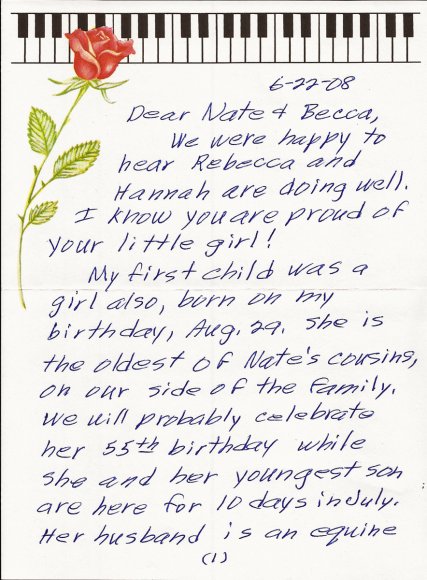 6-22-08
Dear Nate & Becca,
We were happy to
hear Rebecca and
Hannah are doing well.
I know you are proud of
your little girl!
My first child was a
girl also, born on my
birthday, Aug. 29. She is
the oldest of Nate's cousins,
on our side of the family.
We will probably celebrate
her 55th birthday while
she and her youngest son
are here for 10 days in July.
Her husband is an equine
(1)